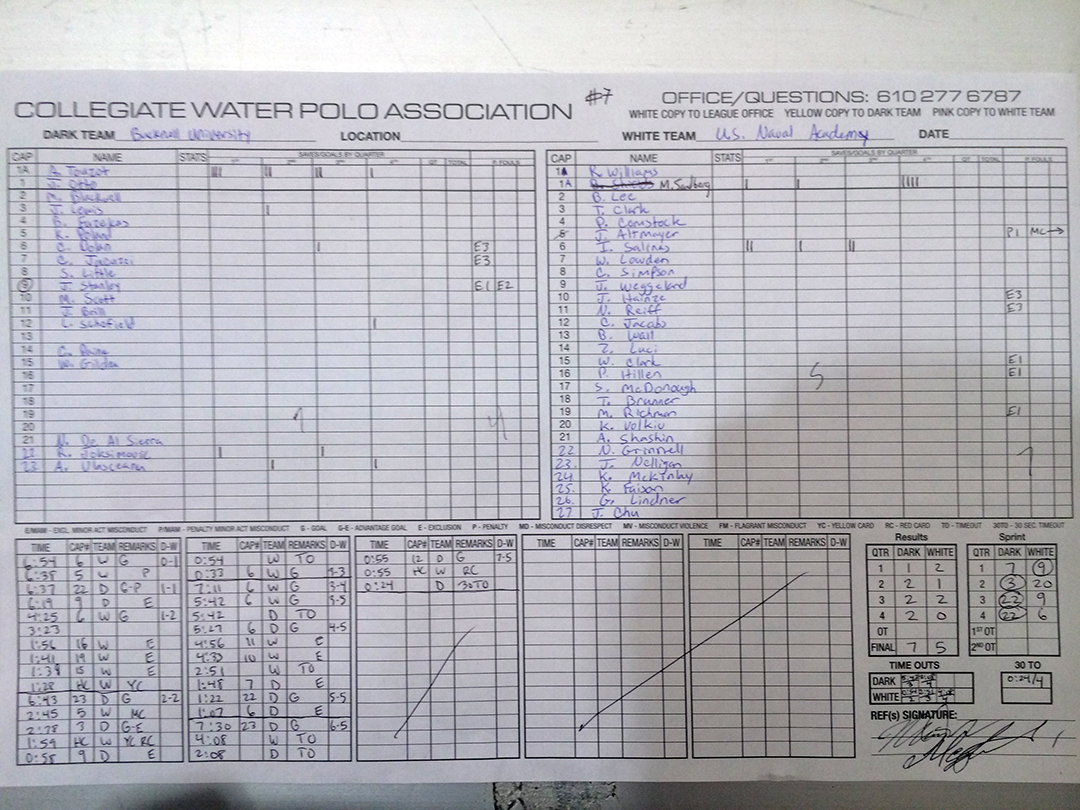 #7
COLLEGIATE WATER POLO ASSOCIATION
OFFICE/QUESTIONS: 610 277 6787
WHITE COPY TO LEAGUE OFFICE YELLOW COPY TO DARK TEAM PINK COPY TO WHITE TEAM
DARK TEAM Bucknell University LOCATION WHITE TEAM U.S. Naval Academy DATE
CAP NAME STATS SAVES/GOALS BY QUARTER 1ST 2ND 3RD 4TH OT TOTAL P. FOULS
1A Touzot
1 J. Otto
2 M. Blackwell
3 J. Lewis
4 B. Fazekas
5 K.
6 C. Nolan E3
7 C. E3
8 S. Little
9 J. Stanley E1 E2
10 M. Scott
11 J. Brill
12 L. Schofield
13
14 C.
15 W. Gildea
16
17
18
19
20
21 N. De Al Sierra
22 R. Joksimovic
23 A.
4
CAP NAME STATS SAVES/GOALS BY QUARTER 1ST 2ND 3RD 4TH OT TOTAL P. FOULS
1 K. Williams
1A M. Sandberg
2 B. Lee
3 T. Clark
4 P. Comstock
5 J. Altmayer P1 MC→
6 I. Salinas
7 W. Lowden
8 C. Simpson
9 J. Weggeland
10 J. Hainze E3
11 N. Reiff E3
12 C. Jacobs
13 B. Wall
14 Z. Luci
15 W. Clark E1
16 P. Hillen E1
17 S. McDonough
18 T. Brunner
19 M. Richman E1
20 K. Volkiv
21 A. Shashin
22 N. Grinnell
23. J. Nelligan
24 K. McKinlay
25. K. Faison
26. G. Lindner
27 J. Chu
5
E/MAM - EXCL. MINOR ACT MISCONDUCT P/MAM - PENALTY MINOR ACT MISCONDUCT G - GOAL G-E - ADVANTAGE GOAL E - EXCLUSION P - PENALTY MD - MISCONDUCT DISRESPECT MV - MISCONDUCT VIOLENCE FM - FLAGRANT MISCONDUCT YC - YELLOW CARD RC - RED CARD TO - TIMEOUT 30TO - 30 SEC. TIMEOUT
TIME CAP# TEAM REMARKS D-W
6:54 6 W G 0-1
6:38 5 W P
6:37 22 D G-P 1-1
6:19 9 D E
4:25 6 W G 1-2
3:23
1:56 16 W E
1:41 19 W E
1:39 15 W E
1:28 HC W YC
6:43 23 D G 2-2
2:45 5 W MC
2:28 3 D G-E
1:59 HC W YC RC
0:58 9 D E
TIME CAP# TEAM REMARKS D-W
0:54 W TO
0:33 6 W G 3-3
7:11 6 W G 3-4
5:42 6 W G 3-5
5:42 D TO
5:27 6 D G 4-5
4:56 11 W E
4:33 10 W E
2:51 W TO
1:48 7 D E
1:22 22 D G 5-5
1:07 6 D E
7:30 23 D G 6-5
4:08 W TO
2:08 D TO
TIME CAP# TEAM REMARKS D-W
0:55 12 D G 7-5
0:55 HC W RC
0:24 D 30TO
TIME CAP# TEAM REMARKS D-W
TIME CAP# TEAM REMARKS D-W
Results
QTR DARK WHITE
1 1 2
2 2 1
3 2 2
4 2 0
OT
FINAL 7 5
Sprint
QTR DARK WHITE
1 7 9
2 3 20
3 22 9
4 22 6
1ST OT
2ND OT
TIME OUTS
DARK
WHITE
30 TO
0:24/4
REF(s) SIGNATURE: